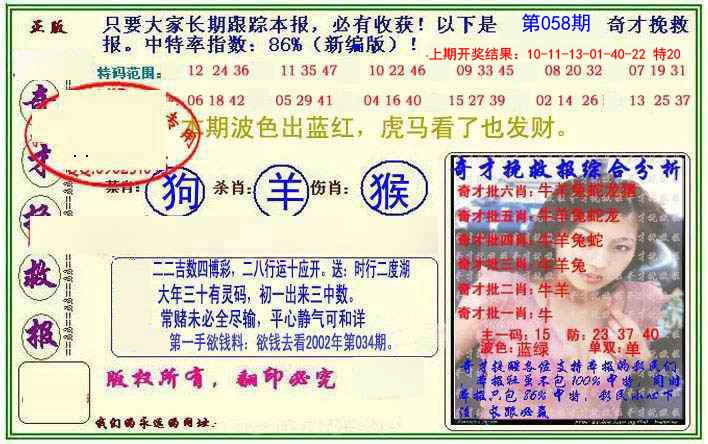 正版
只要大家长期跟踪本报，必有收获！以下是 第058期 奇才挽救
报。中特率指数：86%（新编版）！
上期开奖结果：10-11-13-01-40-22 特20
特码范围：
12 24 36 11 35 47 10 22 46 09 33 45 08 20 32 07 19 31
06 18 42 05 29 41 04 16 40 15 27 39 02 14 26 13 25 37
专用
本期波色出蓝红，虎马看了也发财。
奇才挽救报
禁肖：狗 杀肖：羊 伤肖：猴
二二吉数四博彩，二八行运十应开。送：时行二度湖
大年三十有灵码，初一出来三中数。
常赌未必全尽输，平心静气可和详
第一手欲钱料：欲钱去看2002年第034期。
版权所有，翻印必究
我们的永远的网址：
奇才挽救报综合分析
奇才批六肖：牛羊兔蛇龙猪
奇才批五肖：牛羊兔蛇龙
奇才批四肖：牛羊兔蛇
奇才批三肖：牛羊兔
奇才批二肖：牛羊
奇才批一肖：牛
主一码：15 防：23 37 40
波色：蓝绿 单双：单
奇才挽救各位支持本报的彩民们
本报虽不包100%中特，但对
本报只包86%中特，彩民小心下
注，长跟必赢